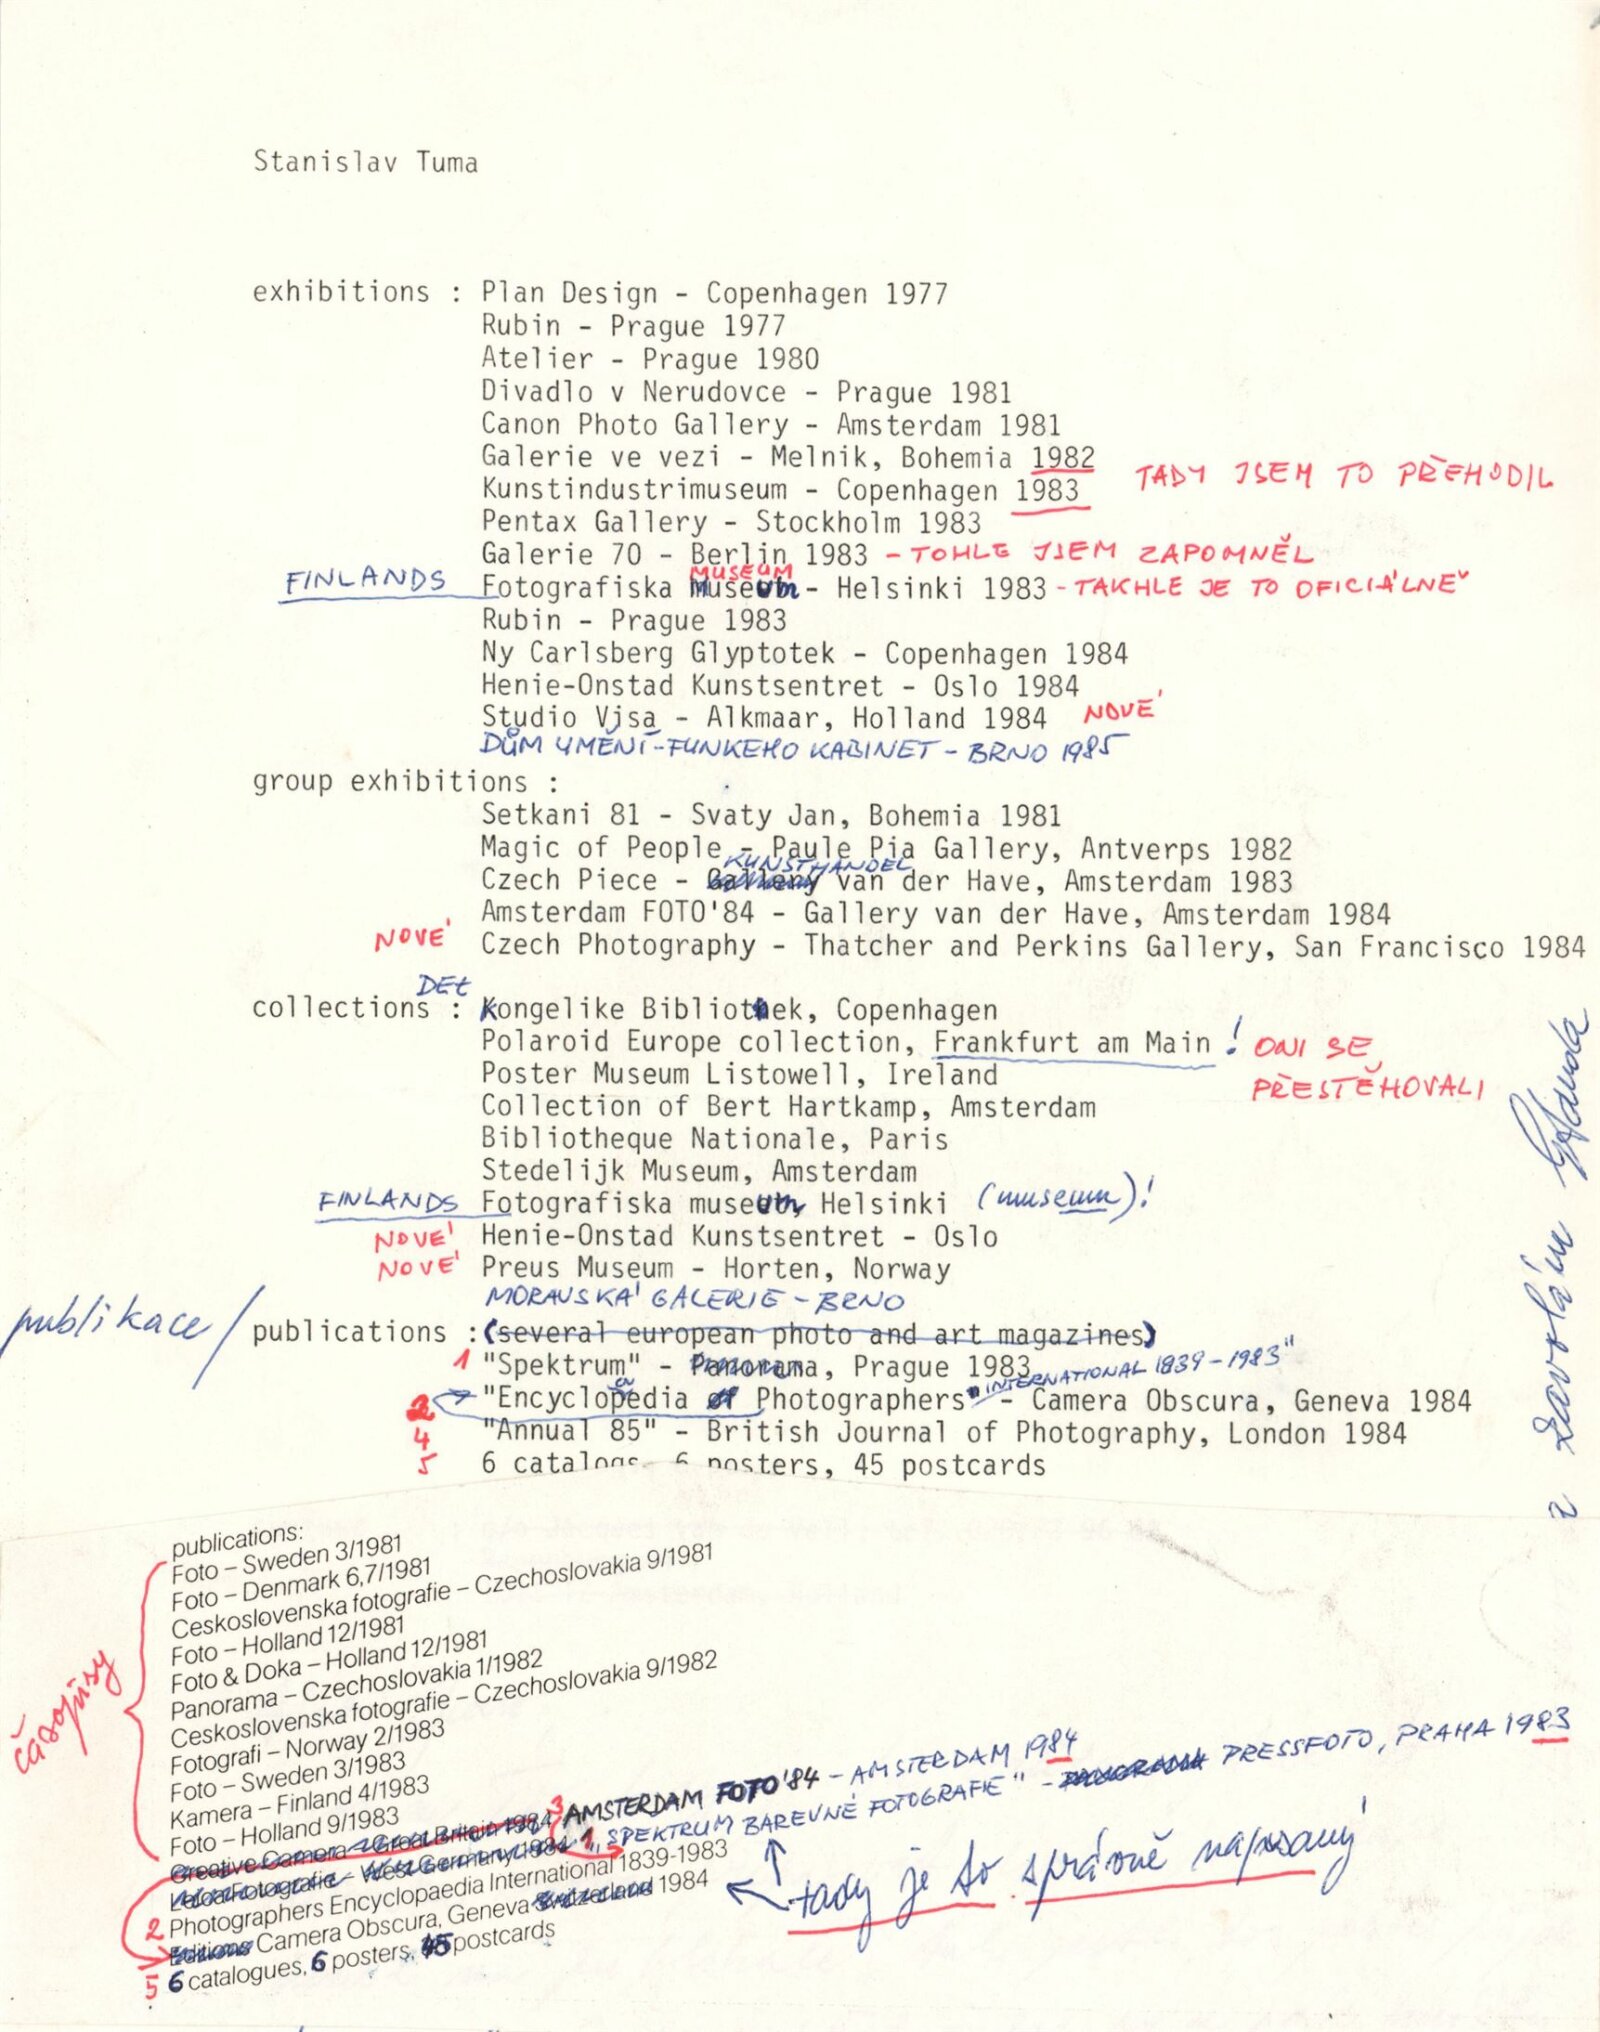 Stanislav Tuma
exhibitions : Plan Design - Copenhagen 1977
Rubin - Prague 1977
Atelier - Prague 1980
Divadlo v Nerudovce - Prague 1981
Canon Photo Gallery - Amsterdam 1981
Galerie ve vezi - Melnik, Bohemia 1982
TADY JSEM TO PŘEHODIL
Kunstindustrimuseum - Copenhagen 1983
Pentax Gallery - Stockholm 1983
Galerie 70 - Berlin 1983 - TOHLE JSEM ZAPOMNĚL
MUSEUM
FINLANDS Fotografiska Museum - Helsinki 1983 - TAKHLE JE TO OFICIÁLNĚ
Rubin - Prague 1983
Ny Carlsberg Glyptotek - Copenhagen 1984
Henie-Onstad Kunstsentret - Oslo 1984
Studio Visa - Alkmaar, Holland 1984 NOVÉ
DŮM UMĚNÍ - FUNKEHO KABINET - BRNO 1985
group exhibitions :
Setkani 81 - Svaty Jan, Bohemia 1981
Magic of People - Paule Pia Gallery, Antverps 1982
KUNSTHANDEL
Czech Piece - Gallery van der Have, Amsterdam 1983
Amsterdam FOTO'84 - Gallery van der Have, Amsterdam 1984
NOVÉ Czech Photography - Thatcher and Perkins Gallery, San Francisco 1984
DET
collections : Kongelike Bibliotek, Copenhagen
Polaroid Europe collection, Frankfurt am Main ! ONI SE
PŘESTĚHOVALI
Poster Museum Listowell, Ireland
Collection of Bert Hartkamp, Amsterdam
Bibliotheque Nationale, Paris
Stedelijk Museum, Amsterdam
FINLANDS Fotografiska museum, Helsinki (museum)!
NOVÉ Henie-Onstad Kunstsentret - Oslo
NOVÉ Preus Museum - Horten, Norway
MORAVSKÁ GALERIE - BRNO
publikace /
publications : (several european photo and art magazines)
1 "Spektrum" - Panorama, Prague 1983
INTERNATIONAL 1839-1983"
2 "Encyclopaedia of Photographers" - Camera Obscura, Geneva 1984
4 "Annual 85" - British Journal of Photography, London 1984
5 6 catalogs, 6 posters, 45 postcards
a zavolám Standa
časopisy
publications:
Foto – Sweden 3/1981
Foto – Denmark 6,7/1981
Ceskoslovenska fotografie – Czechoslovakia 9/1981
Foto – Holland 12/1981
Foto & Doka – Holland 12/1981
Panorama – Czechoslovakia 1/1982
Ceskoslovenska fotografie – Czechoslovakia 9/1982
Fotografi – Norway 2/1983
Foto – Sweden 3/1983
Kamera – Finland 4/1983
Foto – Holland 9/1983
Creative Camera – Great Britain 1984
3 AMSTERDAM FOTO'84 - AMSTERDAM 1984
Leica Fotografie – West Germany 1984
1 "SPEKTRUM BAREVNÉ FOTOGRAFIE" - PANORAMA PRESSFOTO, PRAHA 1983
2 Photographers Encyclopaedia International 1839-1983
Editions Camera Obscura, Geneva Switzerland 1984
5 6 catalogues, 6 posters, 45 postcards
tady je to správně napsaný!